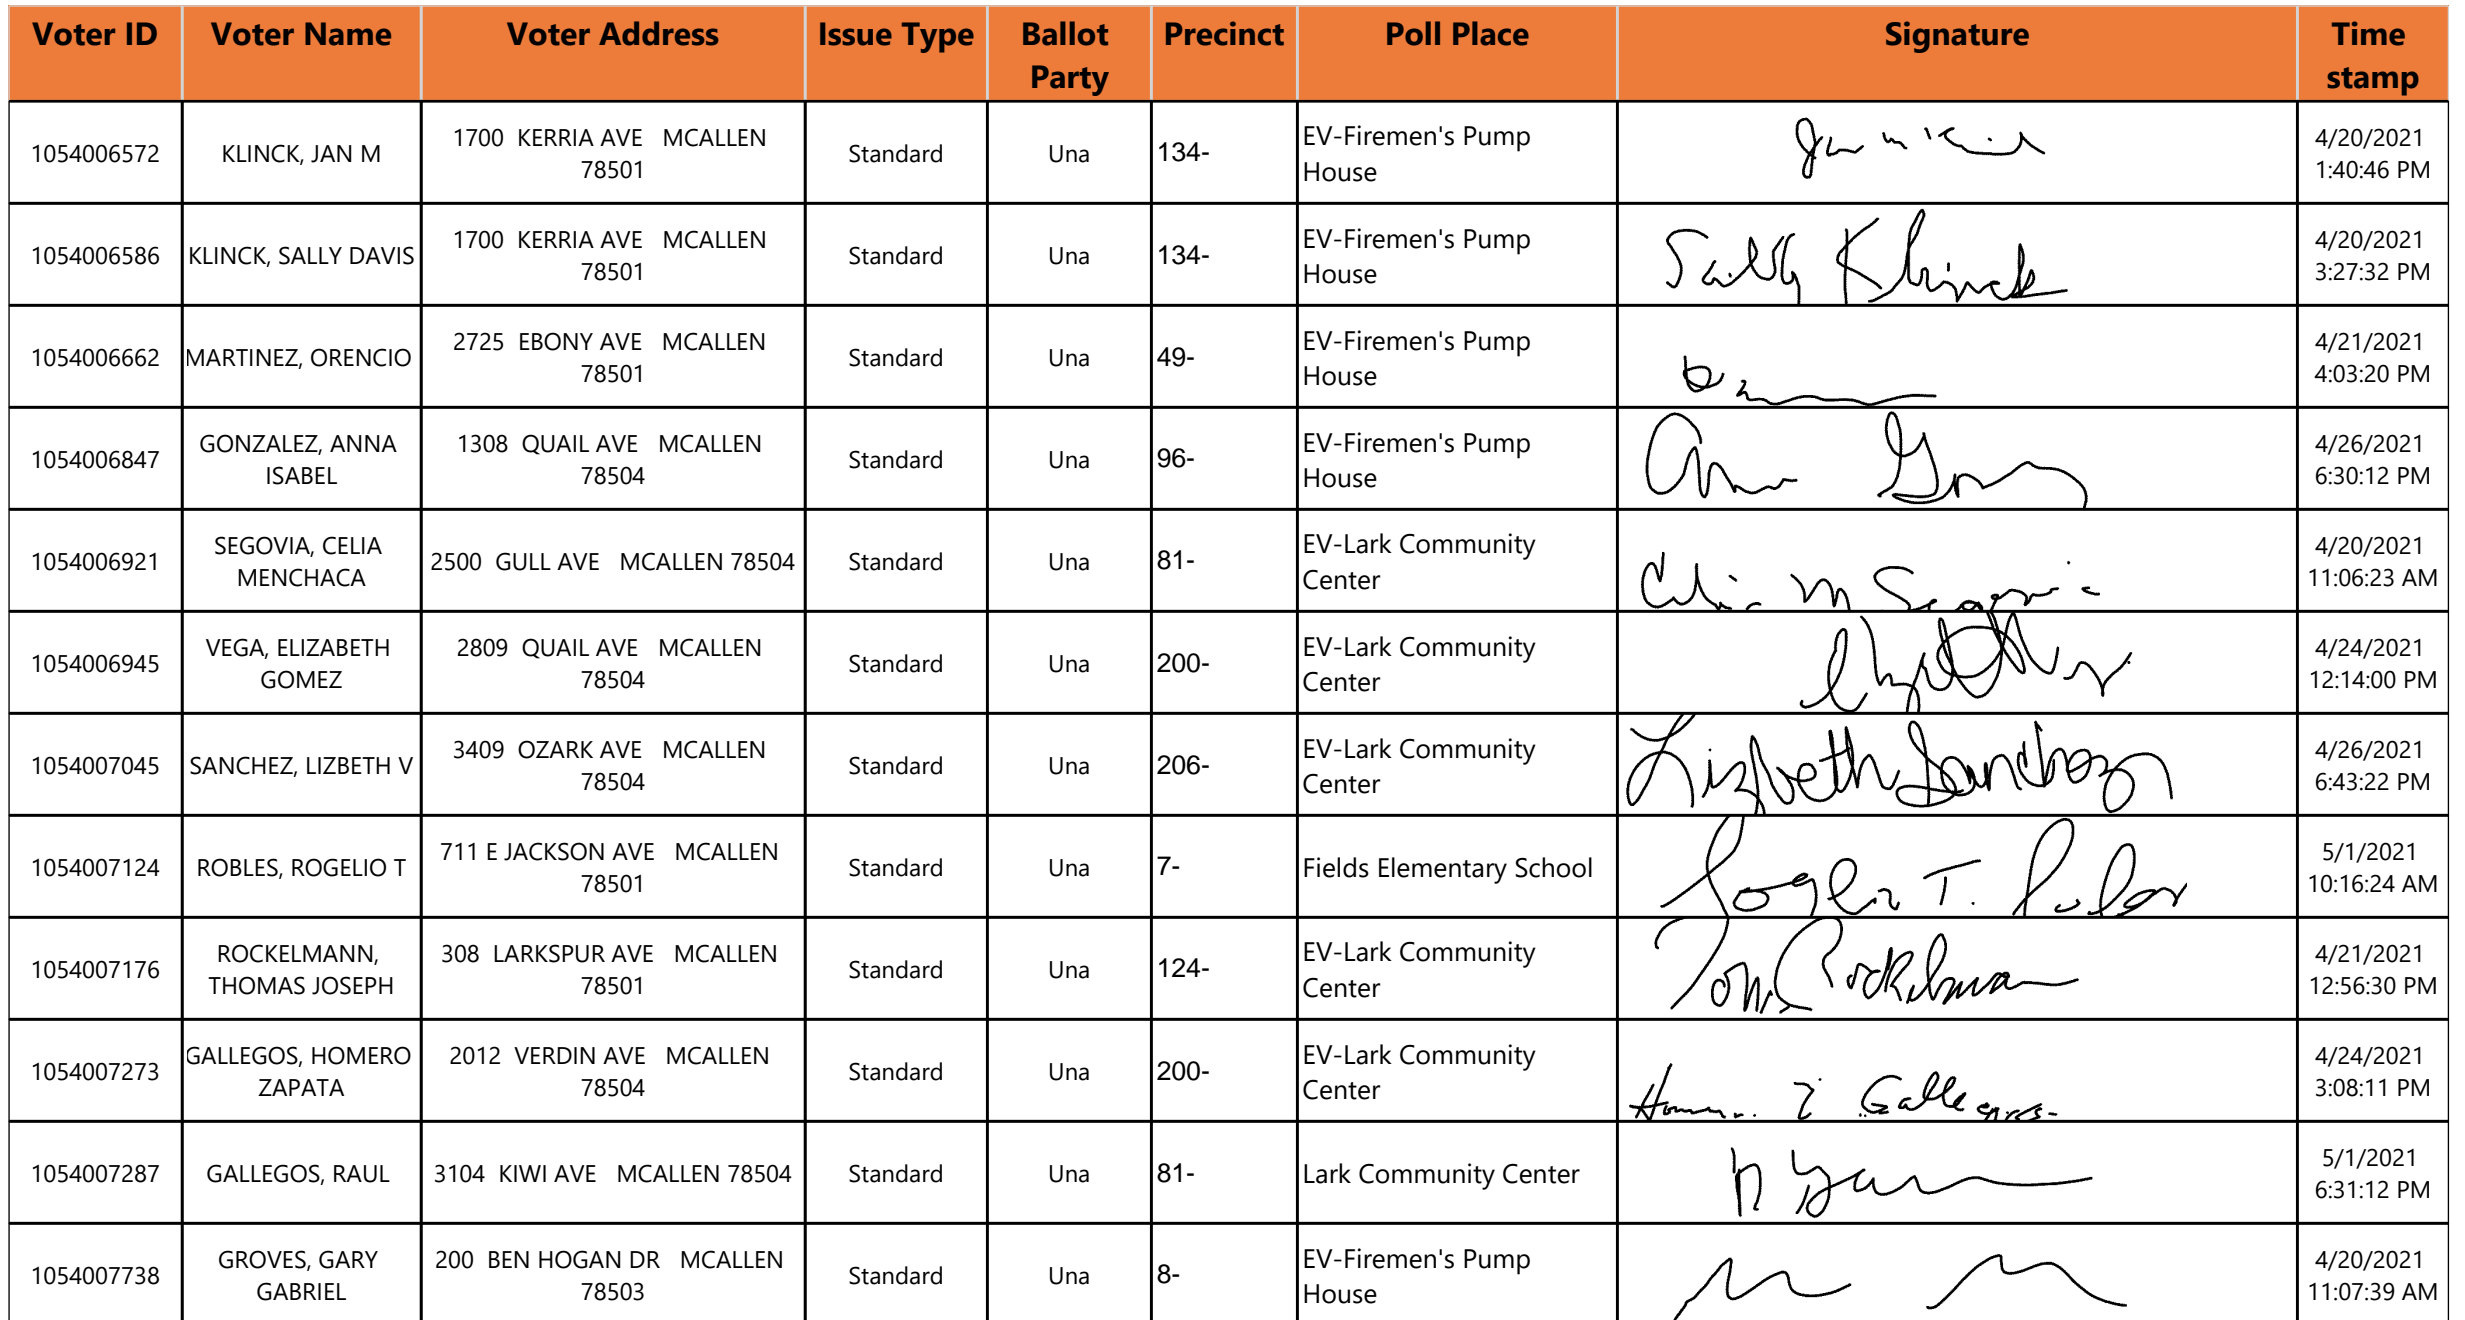 Voter ID Voter Name Voter Address Issue Type Ballot Party Precinct Poll Place Signature Time stamp
1054006572 KLINCK, JAN M 1700 KERRIA AVE MCALLEN 78501 Standard Una 134- EV-Firemen's Pump House 4/20/2021 1:40:46 PM
1054006586 KLINCK, SALLY DAVIS 1700 KERRIA AVE MCALLEN 78501 Standard Una 134- EV-Firemen's Pump House Sally Klinck 4/20/2021 3:27:32 PM
1054006662 MARTINEZ, ORENCIO 2725 EBONY AVE MCALLEN 78501 Standard Una 49- EV-Firemen's Pump House 4/21/2021 4:03:20 PM
1054006847 GONZALEZ, ANNA ISABEL 1308 QUAIL AVE MCALLEN 78504 Standard Una 96- EV-Firemen's Pump House 4/26/2021 6:30:12 PM
1054006921 SEGOVIA, CELIA MENCHACA 2500 GULL AVE MCALLEN 78504 Standard Una 81- EV-Lark Community Center Celia M Segovia 4/20/2021 11:06:23 AM
1054006945 VEGA, ELIZABETH GOMEZ 2809 QUAIL AVE MCALLEN 78504 Standard Una 200- EV-Lark Community Center 4/24/2021 12:14:00 PM
1054007045 SANCHEZ, LIZBETH V 3409 OZARK AVE MCALLEN 78504 Standard Una 206- EV-Lark Community Center Lizbeth Sanchez 4/26/2021 6:43:22 PM
1054007124 ROBLES, ROGELIO T 711 E JACKSON AVE MCALLEN 78501 Standard Una 7- Fields Elementary School Rogelio T. Robles 5/1/2021 10:16:24 AM
1054007176 ROCKELMANN, THOMAS JOSEPH 308 LARKSPUR AVE MCALLEN 78501 Standard Una 124- EV-Lark Community Center Tom Rockelmann 4/21/2021 12:56:30 PM
1054007273 GALLEGOS, HOMERO ZAPATA 2012 VERDIN AVE MCALLEN 78504 Standard Una 200- EV-Lark Community Center Homero Z Gallegos 4/24/2021 3:08:11 PM
1054007287 GALLEGOS, RAUL 3104 KIWI AVE MCALLEN 78504 Standard Una 81- Lark Community Center 5/1/2021 6:31:12 PM
1054007738 GROVES, GARY GABRIEL 200 BEN HOGAN DR MCALLEN 78503 Standard Una 8- EV-Firemen's Pump House 4/20/2021 11:07:39 AM